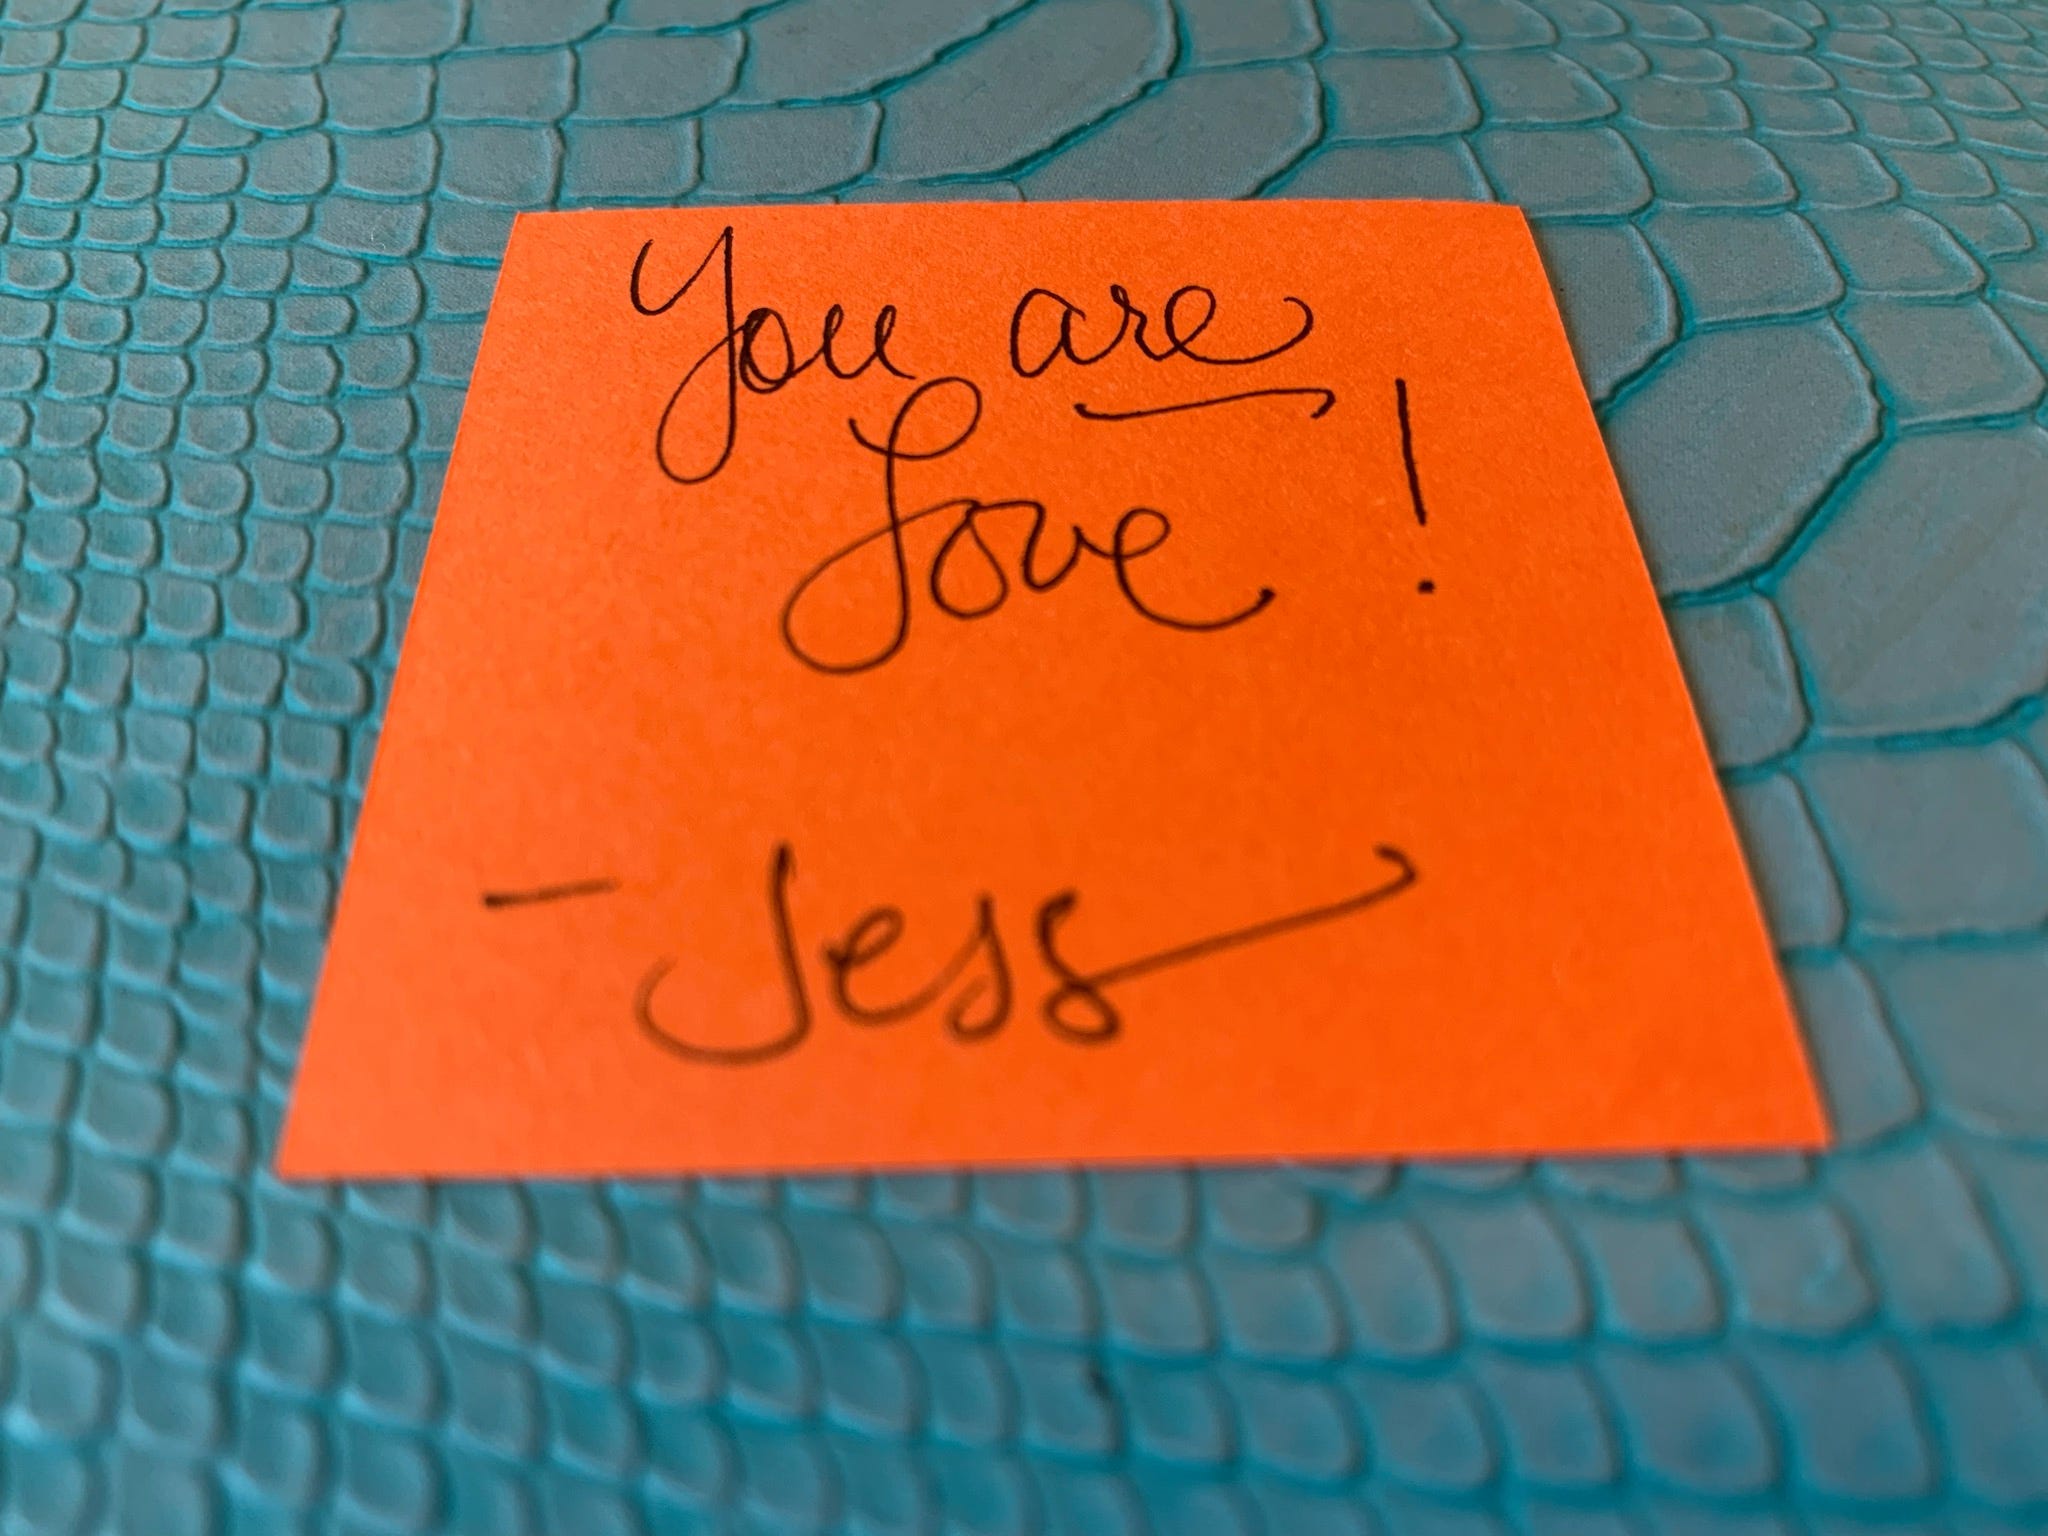 You are
Love!
- Jess